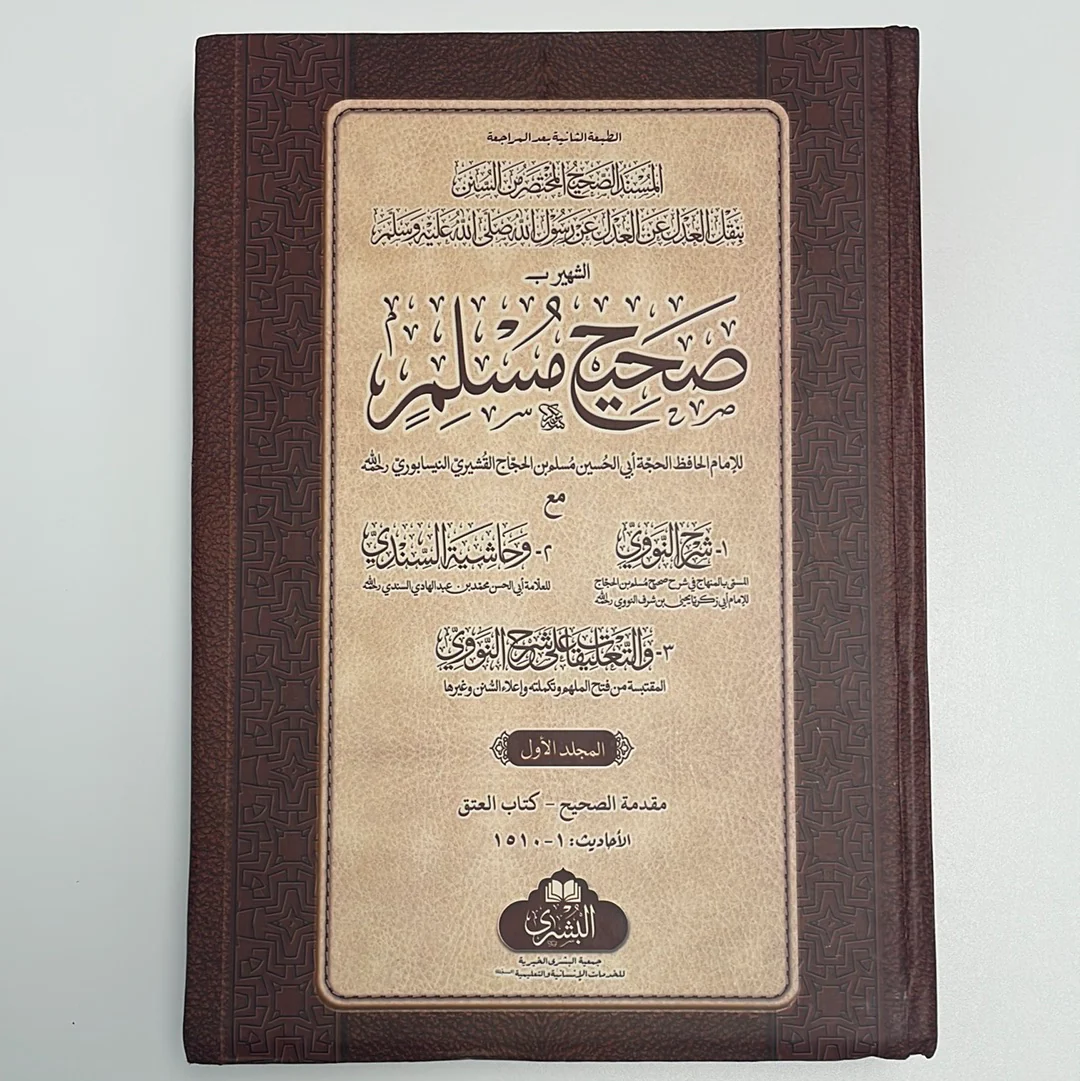 الطبعة الثانية بعد المراجعة
المُسْنَدُ الصَّحِيحُ المُخْتَصَرُ مِنَ السُّنَنِ
بِنَقْلِ العَدْلِ عَنِ العَدْلِ عَنْ رَسُولِ اللهِ صَلَّى اللهُ عَلَيْهِ وَسَلَّمَ
الشهير ب
صَحِيحُ مُسْلِمٍ
للإمام الحافظ الحجّة أبي الحُسين مُسلم بن الحجّاج القُشيريّ النيسابوريّ رحمه الله
مع
١- شَرْحُ النَّوَوِيِّ
المسمّى بالمنهاج في شرح صحيح مُسلم بن الحجّاج
للإمام أبي زكريّا يحيى بن شرف النووي رحمه الله
٢- وَحَاشِيَةُ السِّنْدِيِّ
للعلامة أبي الحسن محمد بن عبد الهادي السندي رحمه الله
٣- وَالتَّعْلِيقَاتُ عَلَى شَرْحِ النَّوَوِيِّ
المقتبسة من فتح الملهم وتكملته وإعلاء السُّنن وغيرها
المجلد الأول
مقدمة الصحيح - كتاب العتق
الأحاديث: ١-١٥١٠
البُشْرَى
جمعية البشرى الخيرية
للخدمات الإنسانية والتعليمية